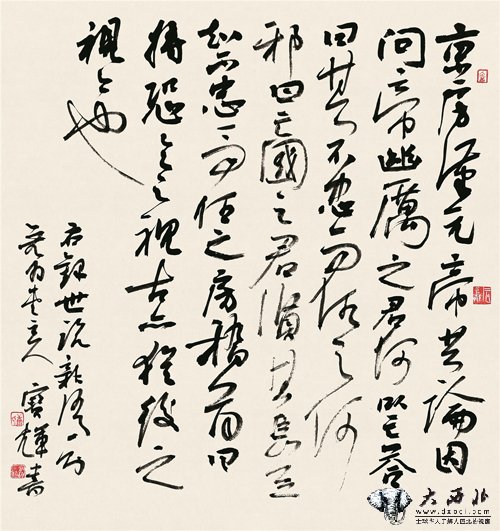 京房漢元帝共論因
问亡帝幽厲之君何以亡答
曰其不忠而任之何
邪曰亡國之君賢其臣豈
知不忠而任之房稽首曰
將恐今之視古亦猶後之
視今也
右録世說新語一則
主人 寶輝書
大西北